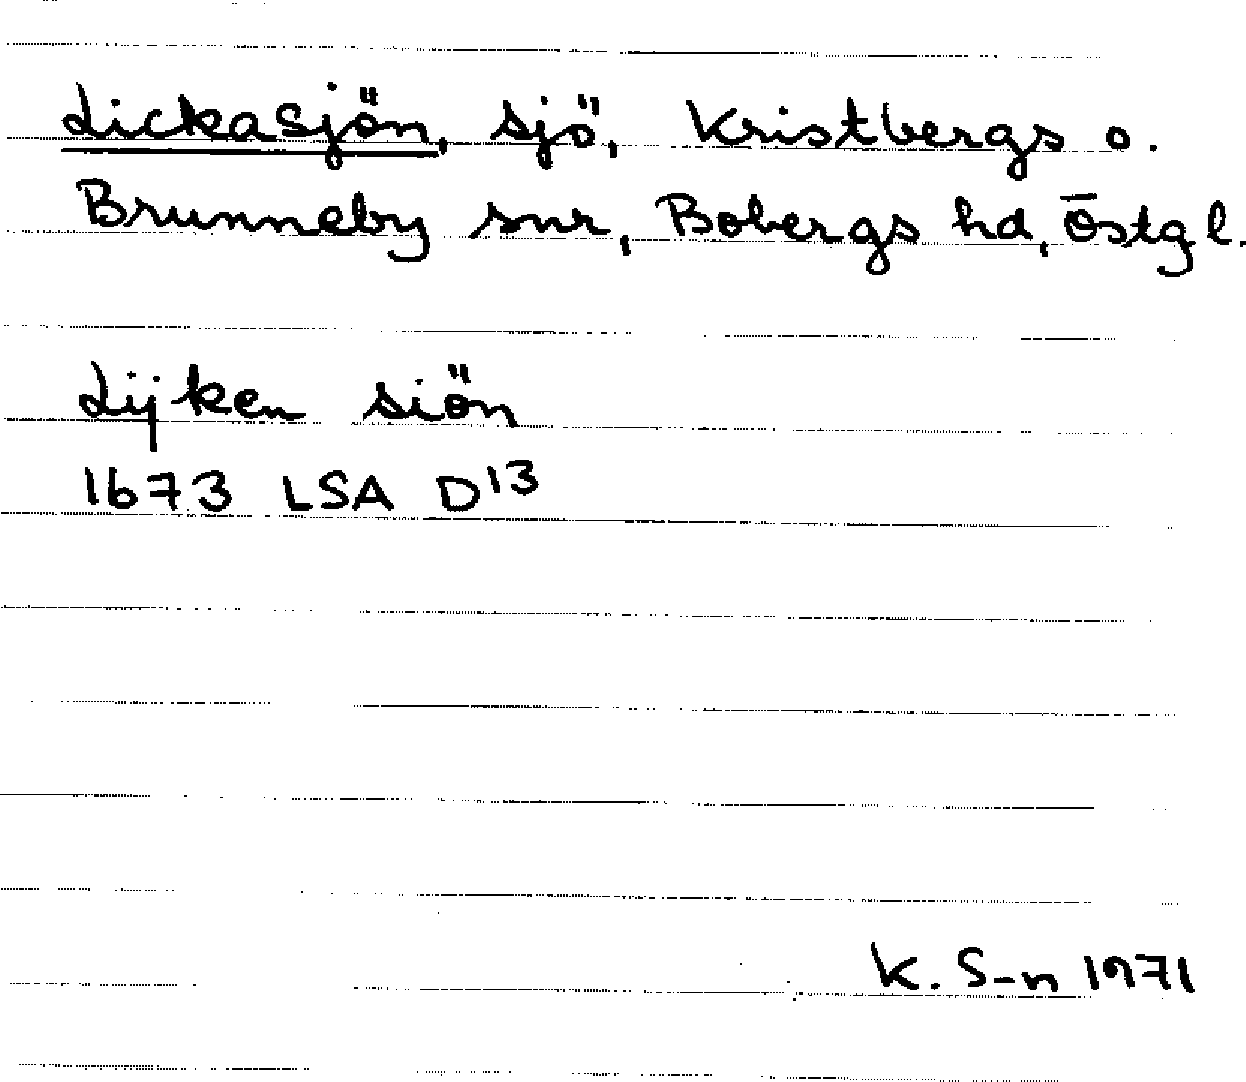 Lickasjön, sjö, Kristbergs o.
Brunneby snr, Bobergs hd, Östgl.
Lijken siön
1673 LSA D13
K. S-n 1971